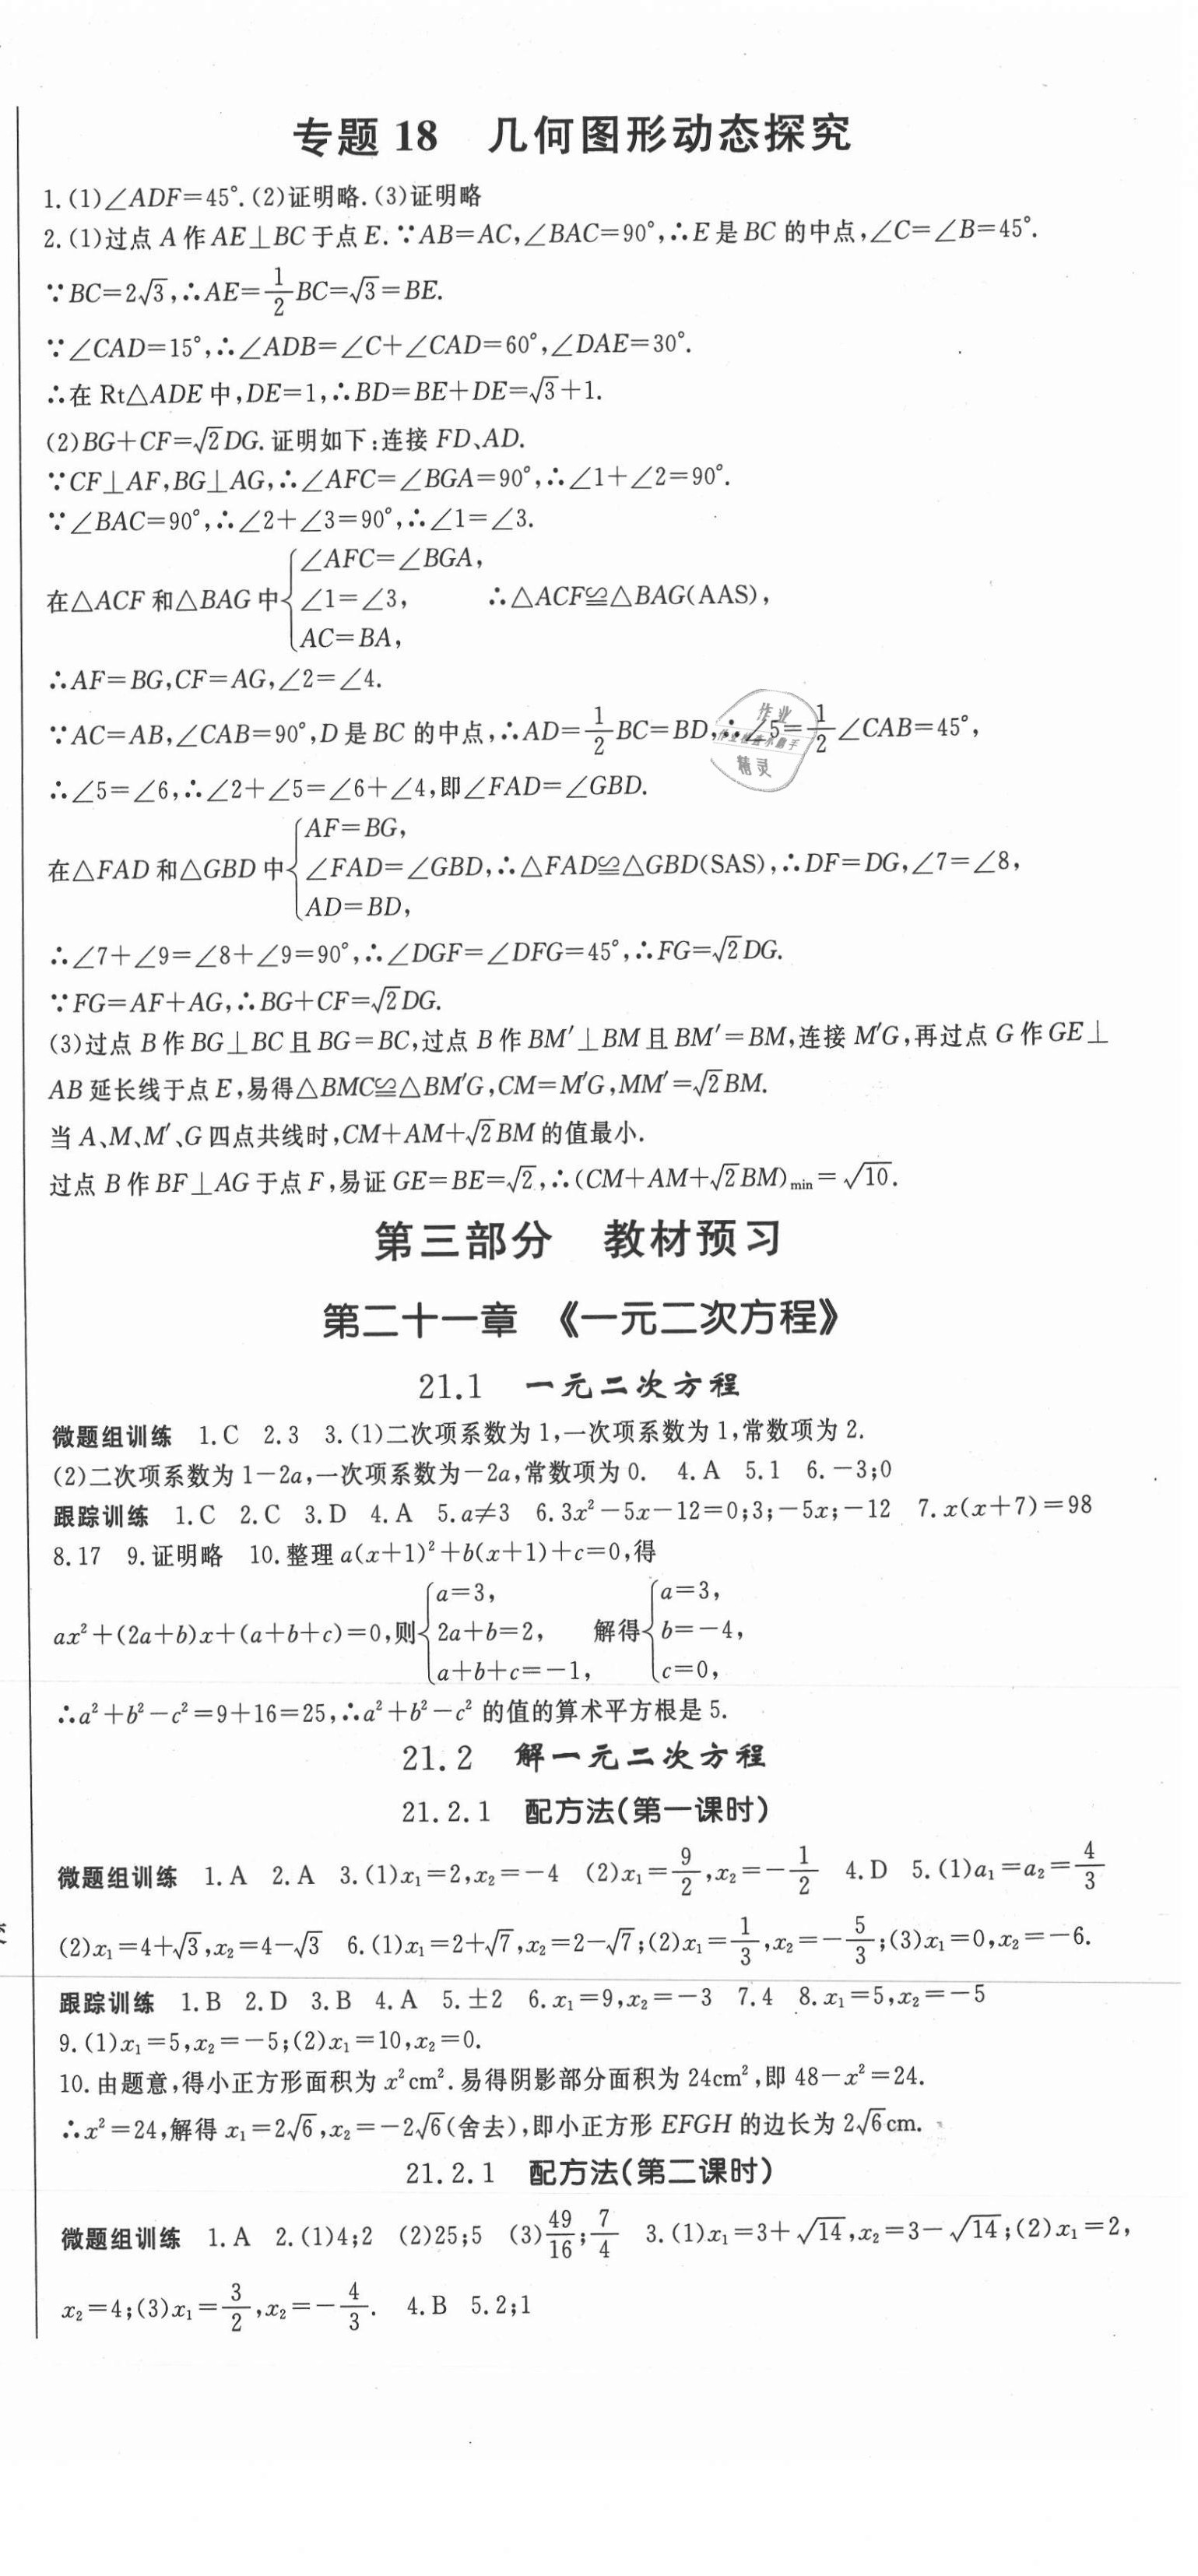 专题 18　几何图形动态探究
1.(1)∠ADF=45°.(2)证明略.(3)证明略
2.(1)过点 A 作 AE⊥BC 于点 E.∵AB=AC,∠BAC=90°,∴E 是 BC 的中点,∠C=∠B=45°.
∵BC=2√3,∴AE=1/2BC=√3=BE.
∵∠CAD=15°,∴∠ADB=∠C+∠CAD=60°,∠DAE=30°.
∴在 Rt△ADE 中,DE=1,∴BD=BE+DE=√3+1.
(2)BG+CF=√2DG.证明如下:连接 FD、AD.
∵CF⊥AF,BG⊥AG,∴∠AFC=∠BGA=90°,∴∠1+∠2=90°.
∵∠BAC=90°,∴∠2+∠3=90°,∴∠1=∠3.
∠AFC=∠BGA,
在△ACF 和△BAG 中{∠1=∠3,　∴△ACF≌△BAG(AAS),
AC=BA,
∴AF=BG,CF=AG,∠2=∠4.
∵AC=AB,∠CAB=90°,D 是 BC 的中点,∴AD=1/2BC=BD,∴∠5=1/2∠CAB=45°,
∴∠5=∠6,∴∠2+∠5=∠6+∠4,即∠FAD=∠GBD.
AF=BG,
在△FAD 和△GBD 中{∠FAD=∠GBD,∴△FAD≌△GBD(SAS),∴DF=DG,∠7=∠8,
AD=BD,
∴∠7+∠9=∠8+∠9=90°,∴∠DGF=∠DFG=45°,∴FG=√2DG.
∵FG=AF+AG,∴BG+CF=√2DG.
(3)过点 B 作 BG⊥BC 且 BG=BC,过点 B 作 BM′⊥BM 且 BM′=BM,连接 M′G,再过点 G 作 GE⊥
AB 延长线于点 E,易得△BMC≌△BM′G,CM=M′G,MM′=√2BM.
当 A、M、M′、G 四点共线时,CM+AM+√2BM 的值最小.
过点 B 作 BF⊥AG 于点 F,易证 GE=BE=√2,∴(CM+AM+√2BM)min=√10.
第三部分　教材预习
第二十一章　《一元二次方程》
21.1　一元二次方程
微题组训练　1.C　2.3　3.(1)二次项系数为 1,一次项系数为 1,常数项为 2.
(2)二次项系数为 1-2a,一次项系数为-2a,常数项为 0.　4.A　5.1　6.-3;0
跟踪训练　1.C　2.C　3.D　4.A　5.a≠3　6.3x²-5x-12=0;3;-5x;-12　7.x(x+7)=98
8.17　9.证明略　10.整理 a(x+1)²+b(x+1)+c=0,得
a=3,　a=3,
ax²+(2a+b)x+(a+b+c)=0,则{2a+b=2,　解得{b=-4,
a+b+c=-1,　c=0,
∴a²+b²-c²=9+16=25,∴a²+b²-c² 的值的算术平方根是 5.
21.2　解一元二次方程
21.2.1　配方法(第一课时)
微题组训练　1.A　2.A　3.(1)x₁=2,x₂=-4　(2)x₁=9/2,x₂=-1/2　4.D　5.(1)a₁=a₂=4/3
(2)x₁=4+√3,x₂=4-√3　6.(1)x₁=2+√7,x₂=2-√7;(2)x₁=1/3,x₂=-5/3;(3)x₁=0,x₂=-6.
跟踪训练　1.B　2.D　3.B　4.A　5.±2　6.x₁=9,x₂=-3　7.4　8.x₁=5,x₂=-5
9.(1)x₁=5,x₂=-5;(2)x₁=10,x₂=0.
10.由题意,得小正方形面积为 x²cm².易得阴影部分面积为 24cm²,即 48-x²=24.
∴x²=24,解得 x₁=2√6,x₂=-2√6(舍去),即小正方形 EFGH 的边长为 2√6cm.
21.2.1　配方法(第二课时)
微题组训练　1.A　2.(1)4;2　(2)25;5　(3)49/16;7/4　3.(1)x₁=3+√14,x₂=3-√14;(2)x₁=2,
x₂=4;(3)x₁=3/2,x₂=-4/3.　4.B　5.2;1
作业
精灵